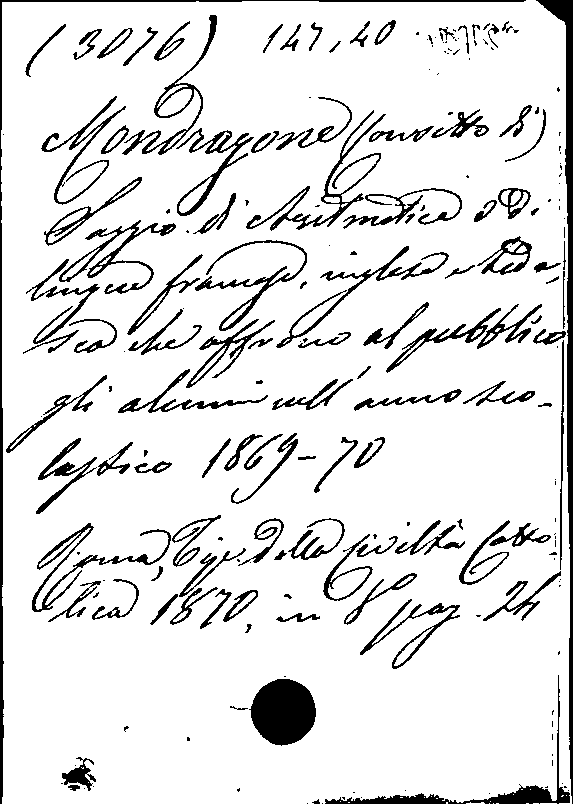 (3076) 147,40
Mondragone (Convitto di)
Saggio di Aritmetica e di
lingue francese, inglese e tede-
sca che offrono al pubblico
gli alunni nell'anno sco-
lastico 1869-70
Roma, Tip. della Civiltà Catto-
lica 1870, in 8° pag. 24